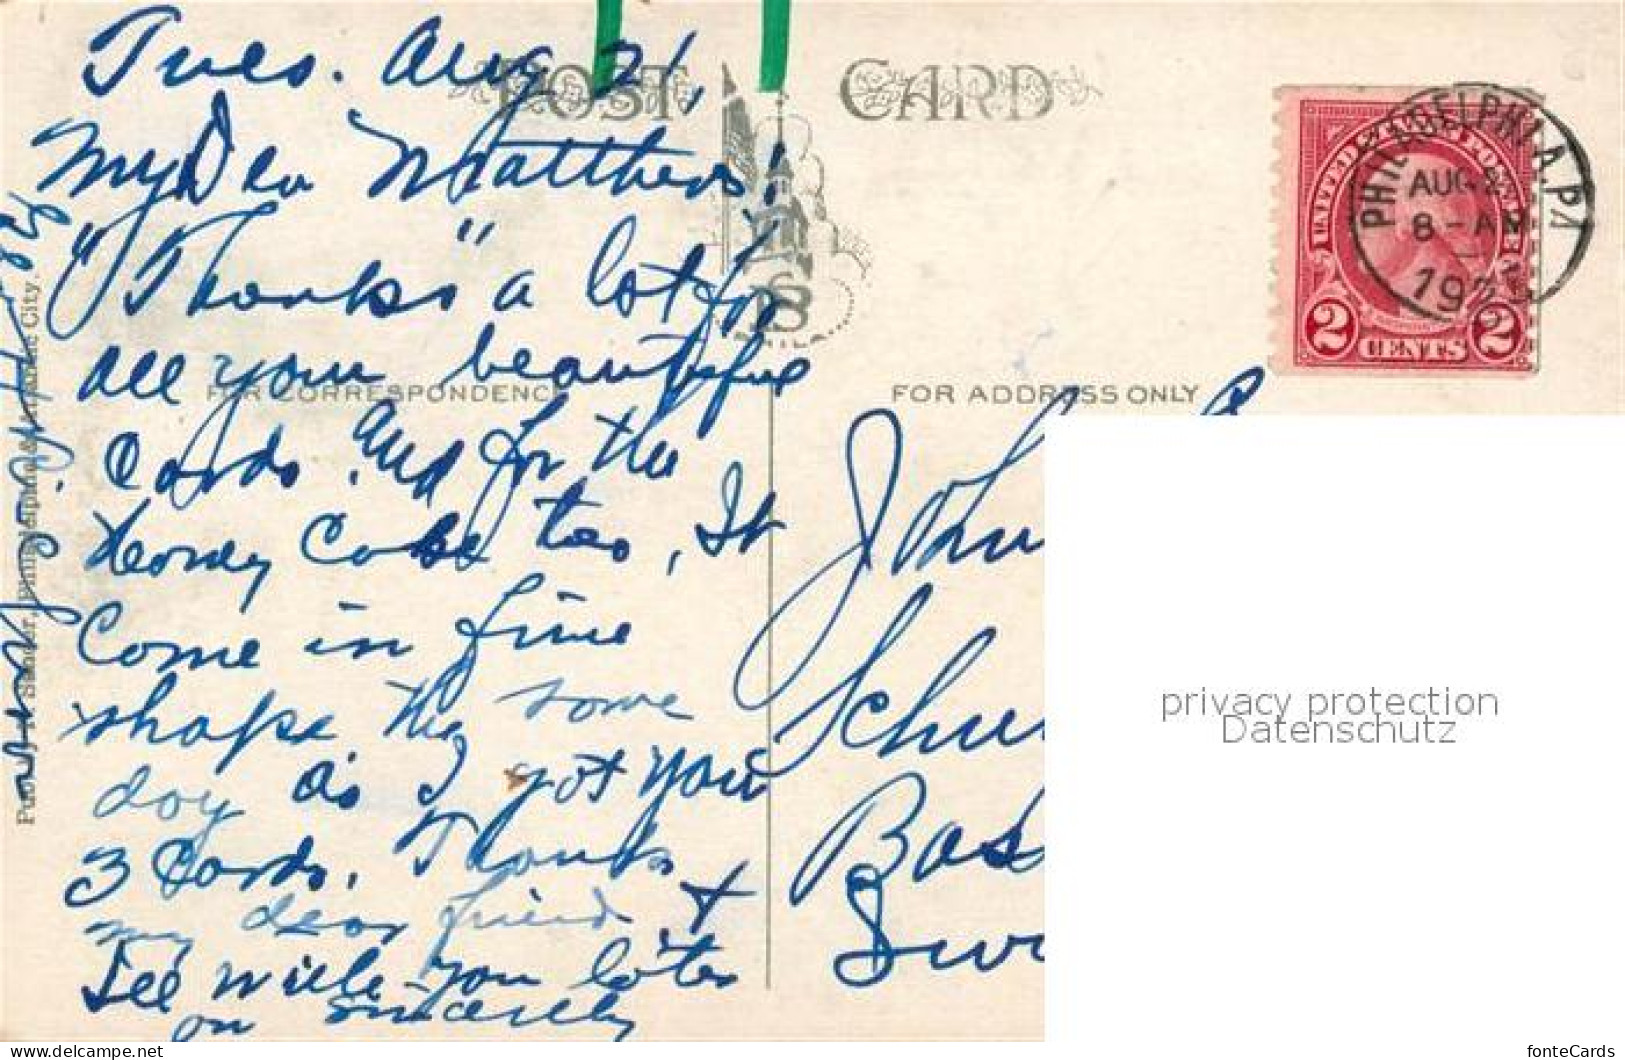 Tues. Aug 21,
POST CARD
My Dear Matthews!
"Thanks" a lot for
all your beautiful
FOR CORRESPONDENCE
FOR ADDRESS ONLY
Cards. And for the
Honey Cake too, It
Come in fine
shape, the some
day as I got your
3 Cards. Thanks
my dear friend, +
I'll write you later
on sincerely
Philadelphia & Atlantic City.
UNITED STATES POSTAGE
2 CENTS 2
PHILADELPHIA, PA
AUG 2
8-AM
193
John
Schu
Bas
Swi
privacy protection
Datenschutz
delcampe.net
fonteCards